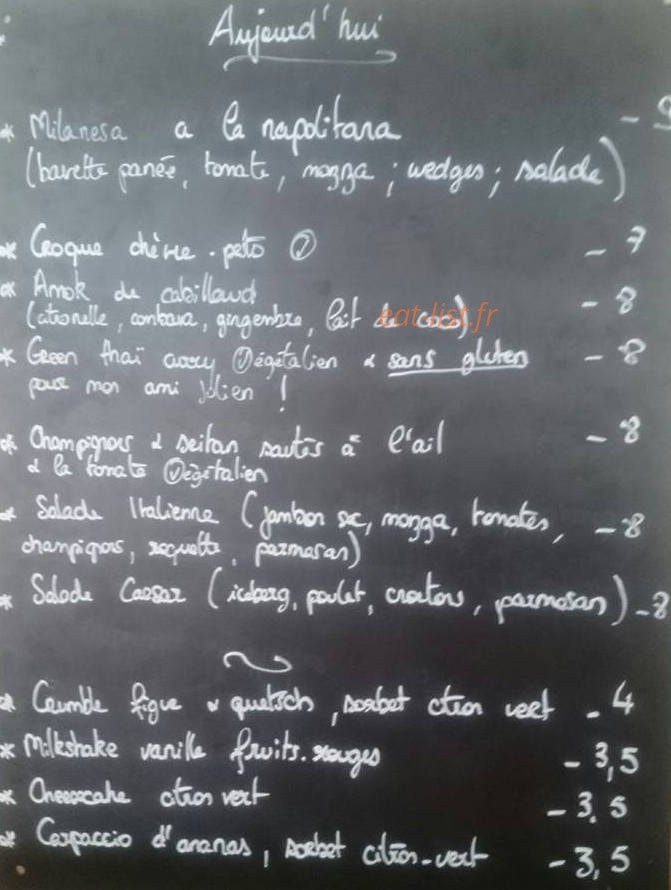 Aujourd'hui
* Milanesa a la napolitana - 9
(bavette panée, tomate, mozza ; wedges ; salade)
* Croque chèvre - pesto Ⓥ - 7
* Amok de cabillaud - 8
(citronelle, combava, gingembre, lait de coco)
eat-list.fr
* Green thaï curry Ⓥégétalien & sans gluten - 8
pour mon ami Julien !
* Champignons & seitan sautés à l'ail - 8
& la tomate Ⓥégétalien
* Salade Italienne (jambon sec, mozza, tomates, - 8
champignons, roquette, parmesan)
* Salade Caesar (iceberg, poulet, croutons, parmesan) - 8
* Crumble figue & quetsch, sorbet citron vert - 4
* Milkshake vanille fruits-rouges - 3,5
* Cheesecake citron vert - 3.5
* Carpaccio d'ananas, sorbet citron-vert - 3,5